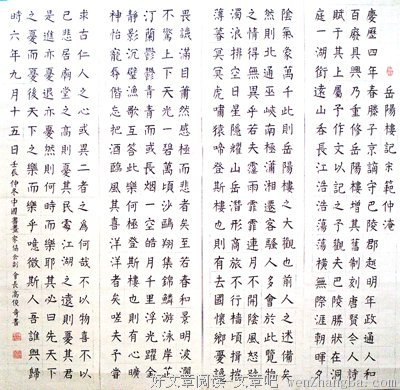 岳陽樓記 宋 范仲淹
慶歷四年春滕子京謫守巴陵郡越明年政通人和
百廢具興乃重修岳陽樓增其舊制刻唐賢今人詩
賦于其上屬予作文以記之予觀夫巴陵勝狀在洞
庭一湖銜遠山吞長江浩浩蕩蕩橫無際涯朝暉夕
陰氣象萬千此則岳陽樓之大觀也前人之述備矣
然則北通巫峽南極瀟湘遷客騷人多會於此覽物
之情得無異乎若夫霪雨霏霏連月不開陰風怒號
濁浪排空日星隱耀山岳潛形商旅不行檣傾楫摧
薄暮冥冥虎嘯猿啼登斯樓也則有去國懷鄉憂讒
畏譏滿目蕭然感極而悲者矣至若春和景明波瀾
不驚上下天光一碧萬頃沙鷗翔集錦鱗游泳岸芷
汀蘭鬱鬱青青而或長煙一空皓月千里浮光躍金
靜影沉璧漁歌互答此樂何極登斯樓也則有心曠
神怡寵辱偕忘把酒臨風其喜洋洋者矣嗟夫予嘗
求古仁人之心或異二者之為何哉不以物喜不以
己悲居廟堂之高則憂其民處江湖之遠則憂其君
是進亦憂退亦憂然則何時而樂耶其必曰先天下
之憂而憂後天下之樂而樂乎噫微斯人吾誰與歸
時六年九月十五日 壬辰仲冬中國書畫家協會副會長高俊奇書
好文章阅读 文章吧
wenzhangba.com